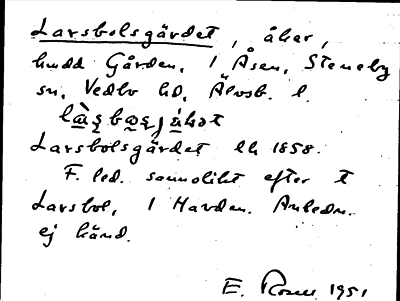 Larsbolsgärdet, åker,
hudd Gården, 1 Åsen, Steneby
sn, Vedbo hd, Älvsb. l.
Larsbolsgärdet lh 1858.
F. led. sannolikt efter t
Larsbol, 1 Havden. Anledn.
ej känd.
E. Rosell 1951